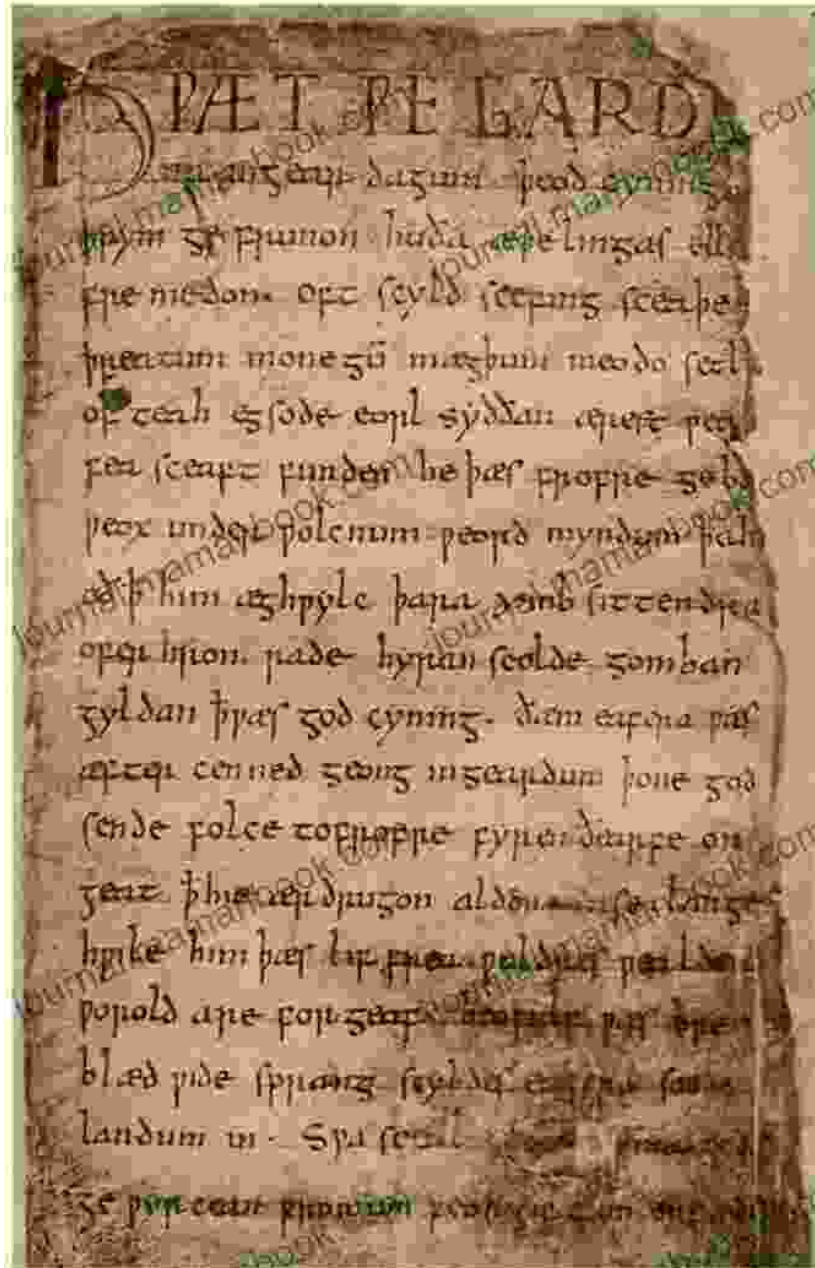 HǷÆT ǷE GARD
in gear dagum þeod cyning
þrym ge frunon huða æþelingas ell
fre medon. oft scyld scefing sceaþe
þreatum monegū mægþum meodo setl
of teah egsode eorl syððan ærest ƿea
fea sceaft funden he þæs frofre geba
ƿeox under ƿolcnum ƿeorð myndum þah
oð ꝥ him æghƿylc þara ymb sittendra
ofer hron rade hyran scolde gomban
gyldan ꝥ ƿæs god cyning. ðæm eafera ƿæs
æfter cenned geong in geardum þone god
sende folce to frofre fyren ðearfe on
geat ꝥ hie ær drugon lange
hƿile him þæs lif frea ƿuldres ƿealde
ƿorold are for geaf ƿæs breme
blæd ƿide sprang scyldes eafera
landum in. Sƿa sceal
ge ƿyrcean fromum feoh giftum
journal.mamanbook.com